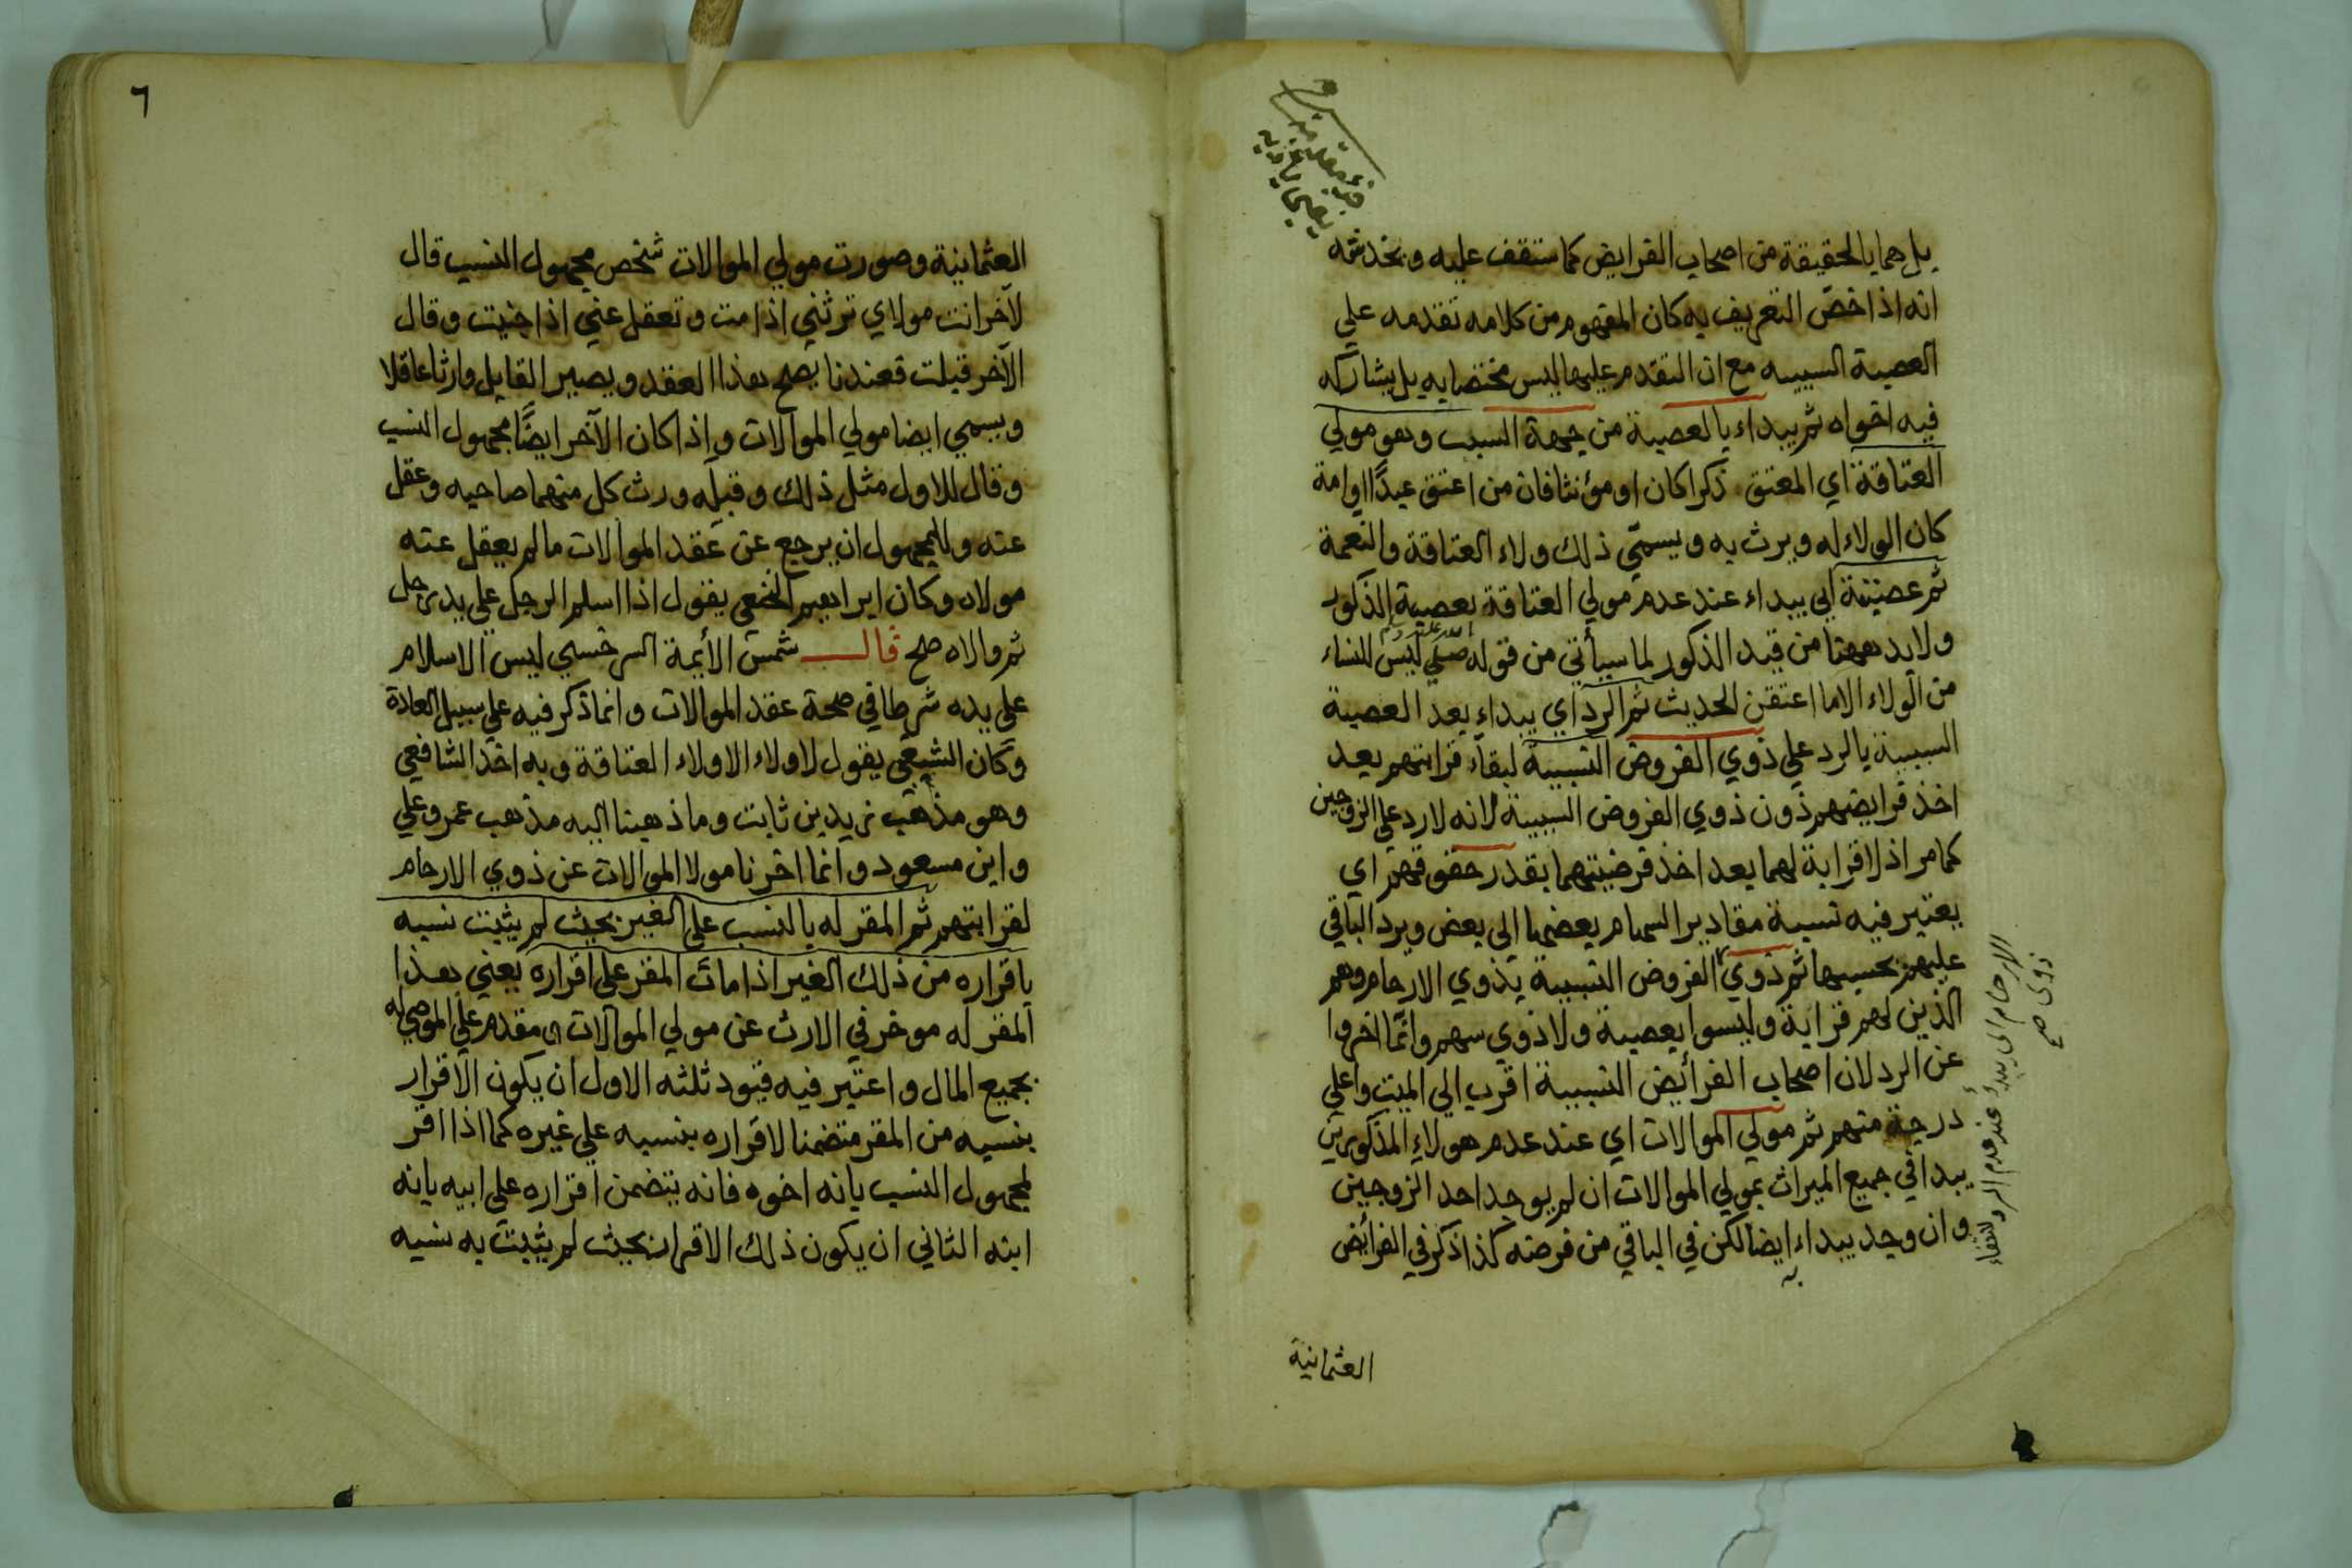 بل هما بالحقيقة من اصحاب الفرايض كما ستقف عليه ويخدشه
انه اذا خصّ التعريف به كان المفهوم من كلامه تقدمه علي
العصبة السببيه مع ان التقدم عليها ليس مختصا به بل يشاركه
فيه اخواه ثم يبداء بالعصبة من جهة السبب وهو مولي
العتاقة اي المعتق ذكرا كان او مؤنثا فان من اعتق عبدًا او امة
كان الولاء له ويرث به ويسمّي ذلك ولاء العتاقة والنعمة
ثم عصبته اي يبداء عند عدم مولي العتاقة بعصبة الذكور
ولابد ههنا من قيد الذكور لما سيأتي من قوله صلي الله عليه وسلم ليس للنساء
من الولاء الا ما اعتقن الحديث ثم الرد اي يبداء بعد العصبة
السببية بالرد علي ذوي الفروض النسبية لبقاء قرابتهم بعد
اخذ فرايضهم دون ذوي الفروض السببية لانه لا رد علي الزوجين
كما مر اذ لا قرابة لهما بعد اخذ فرضيتهما بقدر حقوقهم اي
يعتبر فيه نسبة مقادير السهام بعضها الي بعض ويرد الباقي
عليهم بحسبها ثم ذوي الفروض النسبية بذوي الارحام وهم
الذين لهم قرابة وليسوا بعصبة ولا ذوي سهم وانّما اخروا
عن الرد لان اصحاب الفرائض النسبية اقرب الي الميت واعلي
درجة منهم ثم مولي الموالات اي عند عدم هولاء المذكورين
يبدا في جميع الميراث بمولي الموالات ان لم يوجد احد الزوجين
وان وجد يبداء به ايضا لكن في الباقي من فرضه كذا ذكر في الفرائض
العثمانية
ذوى صح
الارحام اى يبدأ عند عدم الرد لانتفاء
٦
العثمانية وصورت مولي الموالات شخص مجهول النسب قال
لآخر انت مولاي ترثني اذا مت وتعقل عني اذا جنيت وقال
الآخر قبلت فعندنا يصح هذا العقد ويصير القابل وارثا عاقلا
ويسمي ايضا مولي الموالات واذا كان الآخر ايضًا مجهول النسب
وقال للاول مثل ذلك وقبله ورث كل منهما صاحبه وعقل
عنه وللمجهول ان يرجع عن عقد الموالات ما لم يعقل عنه
مولاه وكان ابراهيم النخعي يقول اذا اسلم الرجل علي يدي رجل
ثم والاه صح قال شمس الأئمة السرخسي ليس الاسلام
علي يده شرطا في صحة عقد الموالات وانما ذكر فيه علي سبيل العادة
وكان الشعبي يقول لا ولاء الا ولاء العتاقة وبه اخذ الشافعي
وهو مذهب زيد بن ثابت وما ذهبنا اليه مذهب عمر وعلي
وابن مسعود وانما اخرنا مولا الموالات عن ذوي الارحام
لقرابتهم ثم المقر له بالنسب علي الغير بحيث لم يثبت نسبه
باقراره من ذلك الغير اذا مات المقر علي اقراره يعني هذا
المقر له موخر في الارث عن مولي الموالات و مقدم علي الموصي له
بجميع المال واعتبر فيه قيود ثلثه الاول ان يكون الاقرار
بنسبه من المقر متضمنا لاقراره بنسبه علي غيره كما اذا اقر
لمجهول النسب بانه اخوه فانه يتضمن اقراره علي ابيه بانه
ابنه الثاني ان يكون ذلك الاقرار بحيث لم يثبت به نسبه